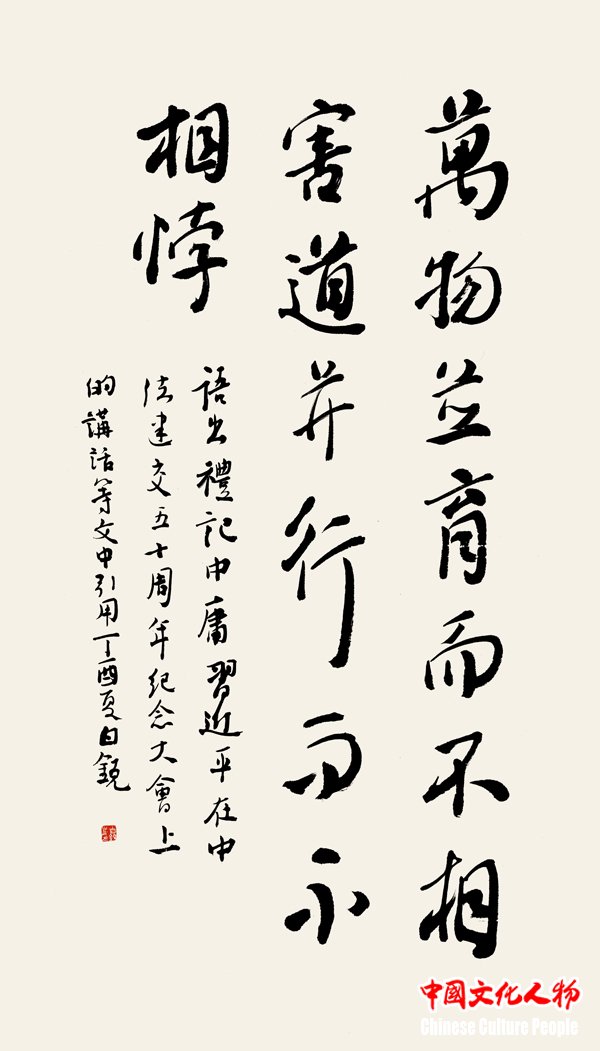 萬物並育而不相
害道并行而不
相悖
語出禮記中庸習近平在中
法建交五十周年紀念大會上
的講話等文中引用丁酉夏白鏡
中國文化人物
Chinese Culture People